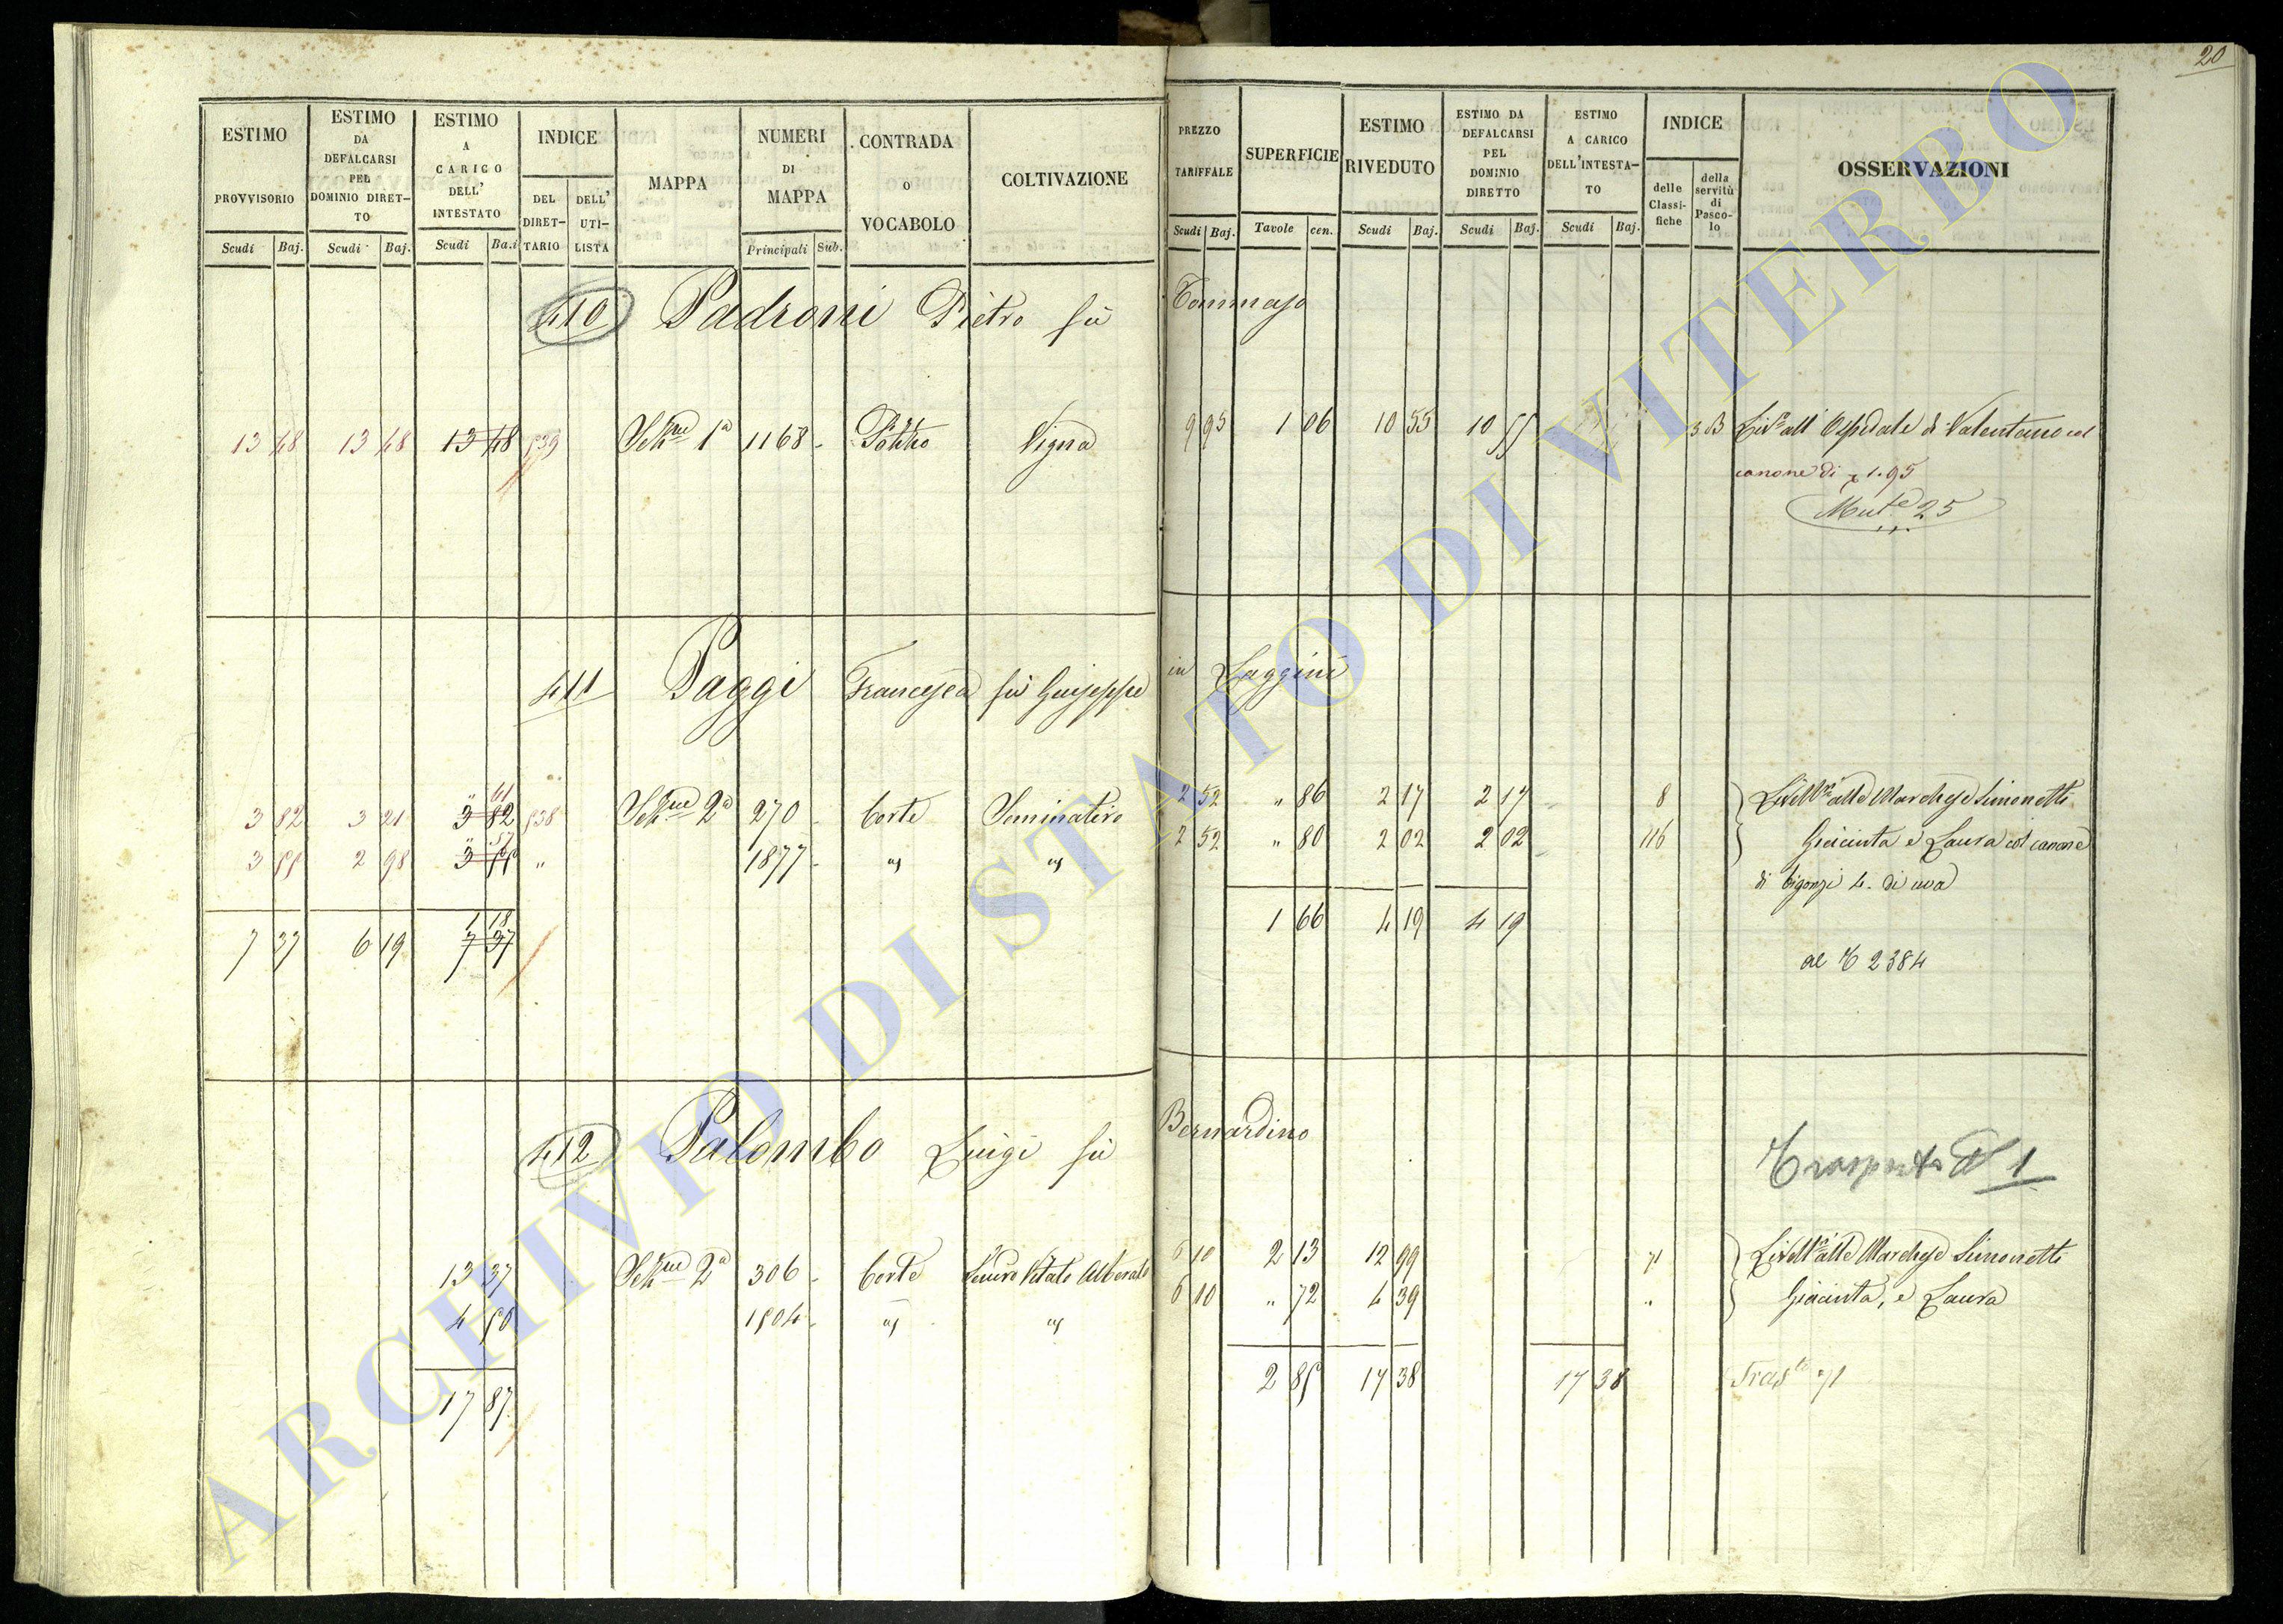 20
ESTIMO PROVVISORIO Scudi Baj.
ESTIMO DA DEFALCARSI PEL DOMINIO DIRET-TO Scudi Baj.
ESTIMO A CARICO DELL' INTESTATO Scudi Ba.i
INDICE DEL DIRET-TARIO DELL' UTI-LISTA
MAPPA
NUMERI DI MAPPA Principali Sub.
CONTRADA O VOCABOLO
COLTIVAZIONE
PREZZO TARIFFALE Scudi Baj.
SUPERFICIE Tavole cen.
ESTIMO RIVEDUTO Scudi Baj.
ESTIMO DA DEFALCARSI PEL DOMINIO DIRETTO Scudi Baj.
ESTIMO A CARICO DELL'INTESTA-TO Scudi Baj.
INDICE delle Classi-fiche della servitù di Pasco-lo
OSSERVAZIONI
410 Padroni Pietro fù Tommaso
13 48 13 48 13 48 539 Sez.ne 1a 1168 Vigna 9 95 1 06 10 55 10 55 3 B Liv.o all' Ospedale di Valentano col
canone di 1.95
Mut.e 25
411 Paggi Francesca fù Giuseppe in Laggini
" 61
3 82 3 21 3 82 538 Sez.ne 2a 270 Corte Seminativo 2 52 " 86 2 17 2 17 8 Livell.ria alle Marchese Simonetti
" 57
3 55 2 98 3 55 " 1877 " " 2 52 " 80 2 02 2 02 116 Giacinta e Laura col canone
di bigonzi 4. di uva
1 18
7 37 6 19 7 37 1 66 4 19 4 19
al 2384
412 Palombo Luigi fù Bernardino
Trasportato 1
13 37 Sez.ne 2a 306 Corte Vitato Alberato 6 10 2 13 12 99 71 Livell.rio alle Marchese Simonetti
4 50 1804 " " 6 10 " 72 4 39 " Giacinta, e Laura
17 87 2 85 17 38 17 38 Tras.to 71
ARCHIVIO DI STATO DI VITERBO